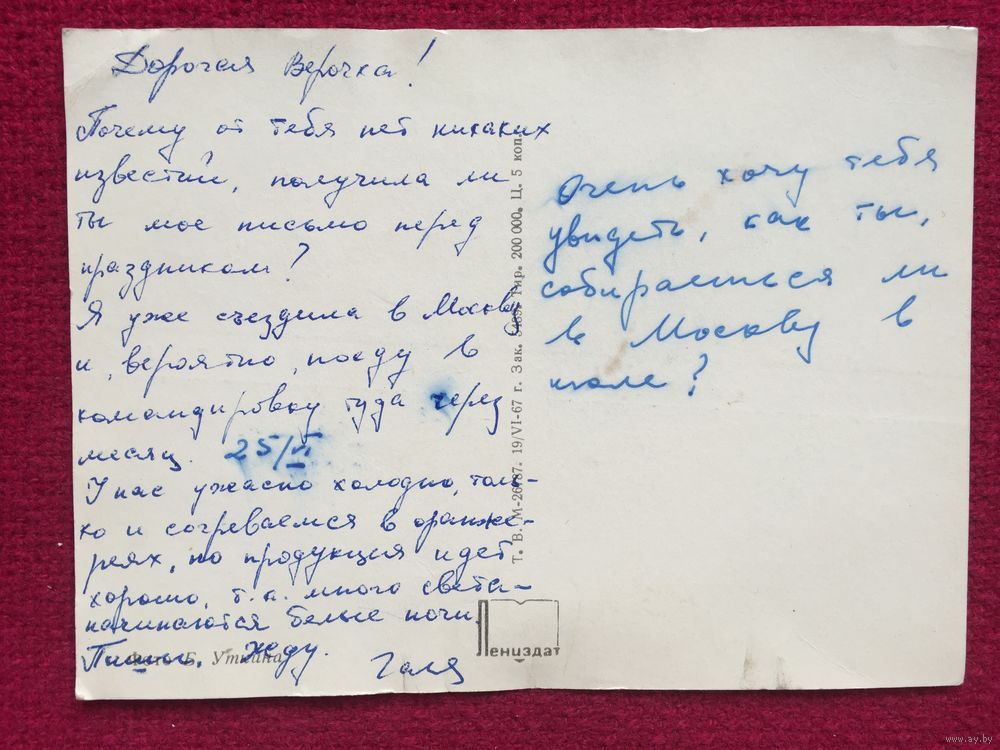 Дорогая Верочка!
Почему от тебя нет никаких
известий, получила ли
ты мое письмо перед
праздником?
Я уже съездила в Москву
и, вероятно, поеду в
командировку туда через
месяц. 25/VI
У нас ужасно холодно, толь-
ко и согреваемся в оранже-
реях, но продукция идет
хорошо, т.к. много света -
начинаются белые ночи.
Пиши, жду.
Галя
Очень хочу тебя
увидеть, как ты,
собираешься ли
в Москву в
июле?
Т. В. М-26787. 19/VI-67 г. Зак. Тир. 200 000. Ц. 5 коп.
Б. Уткина
Лениздат
www.ay.by